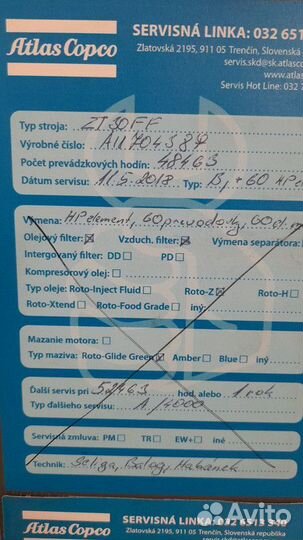 Atlas Copco
SERVISNÁ LINKA: 032 651
Zlatovská 2195, 911 05 Trenčín, Slovenská
servis.skd@sk.atlasco
www.atlas
Servis Hot Line: 032 7
Typ stroja: ZT30FF
Výrobné číslo: AII704587
Počet prevádzkových hodín: 48463
Dátum servisu: 11.5.2018 Typ: B, + 60 HP el
Výmena: HP element, GO prevodovky, GO
Olejový filter: Vzduch. filter: Výmena separátora:
Intergovaný filter: DD PD
Kompresorový olej:
Typ oleje: Roto-Inject Fluid Roto-Z Roto-H
Roto-Xtend Roto-Food Grade iný:
Mazanie motora:
Typ maziva: Roto-Glide Green Amber Blue iný
Ďalší servis pri 52463 hod, alebo 1 rok
Typ ďalšieho servisu: A/4000
Servisná zmluva: PM TR EW+ iné
Technik: Seliga, Balog,
Atlas Copco
SERVISNÁ LINKA: 032 6513 340
Zlatovská 2195, 911 05 Trenčín, Slovenská republika
Avito